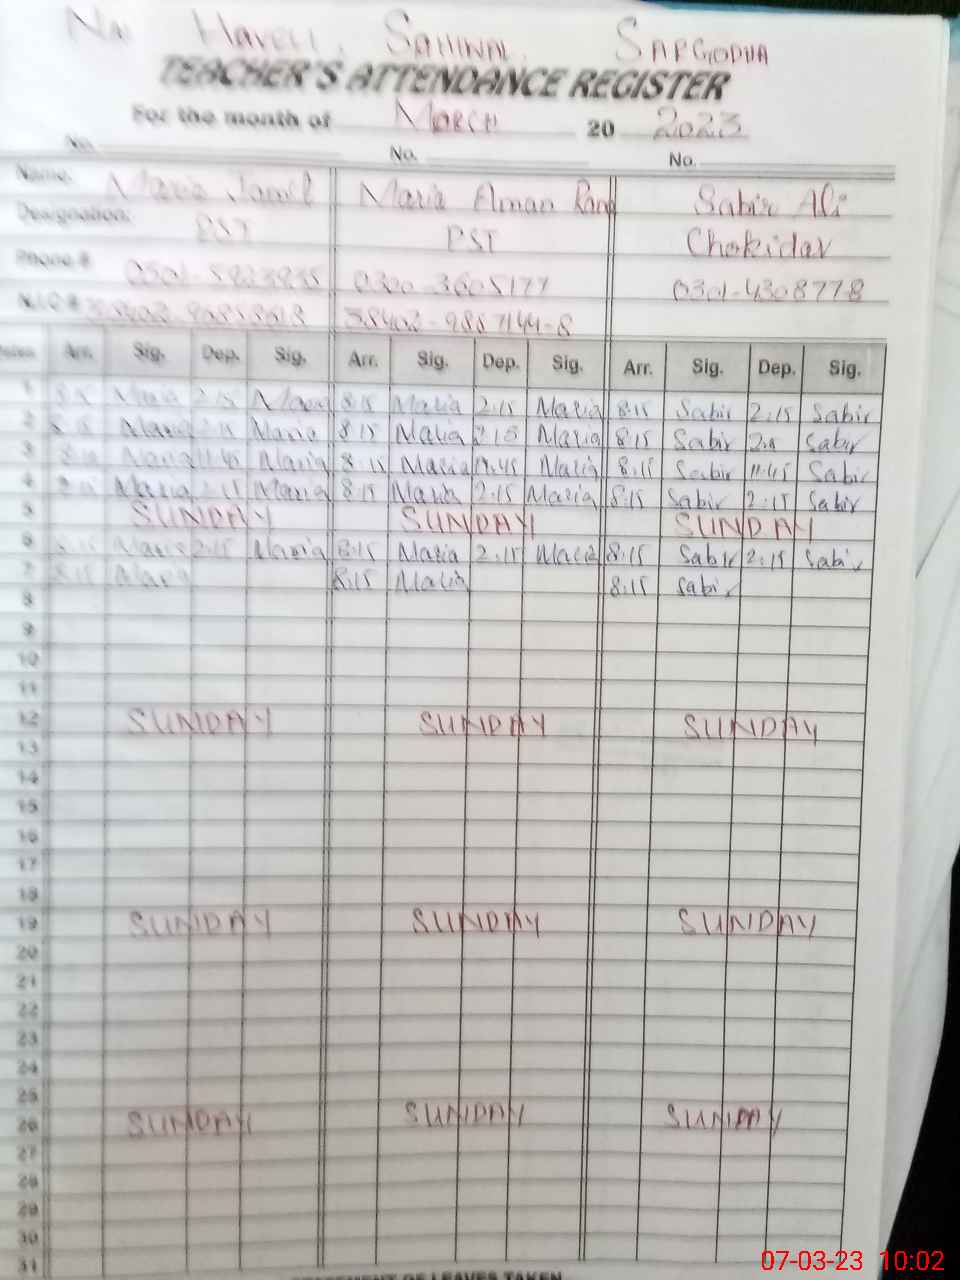 Haveli. SAHIWAL. SARGODHA
TEACHER'S ATTENDANCE REGISTER
For the month of March 20 2023
No. No. No.
Name: Maria Jamil Maria Aman Sabir Ali
Designation: PST PST Chokidar
Phone # 0300-3605177 0301-4308778
N.I.C #
Dates Arr. Sig. Dep. Sig. Arr. Sig. Dep. Sig. Arr. Sig. Dep. Sig.
1 8:15 Maria 2:15 Maria 8:15 Maria 2:15 Maria 8:15 Sabir 2:15 Sabir
2 Maria 2:15 Maria 8:15 Maria 2:15 Maria 8:15 Sabir Sabir
3 Maria 11:45 Maria 8:15 Maria 11:45 Maria 8:15 Sabir 11:45 Sabir
4 Maria 2:15 Maria 8:15 Maria 2:15 Maria 8:15 Sabir 2:15 Sabir
5 SUNDAY SUNDAY SUNDAY
6 8:15 Maria 2:15 Maria 8:15 Maria 2:15 Maria 8:15 Sabir 2:15 Sabir
7 8:15 Maria 8:15 Maria 8:15 Sabir
8
9
10
11
12 SUNDAY SUNDAY SUNDAY
13
14
15
16
17
18
19 SUNDAY SUNDAY SUNDAY
20
21
22
23
24
25
26 SUNDAY SUNDAY SUNDAY
27
28
29
30
31
STATEMENT OF LEAVES TAKEN
07-03-23 10:02